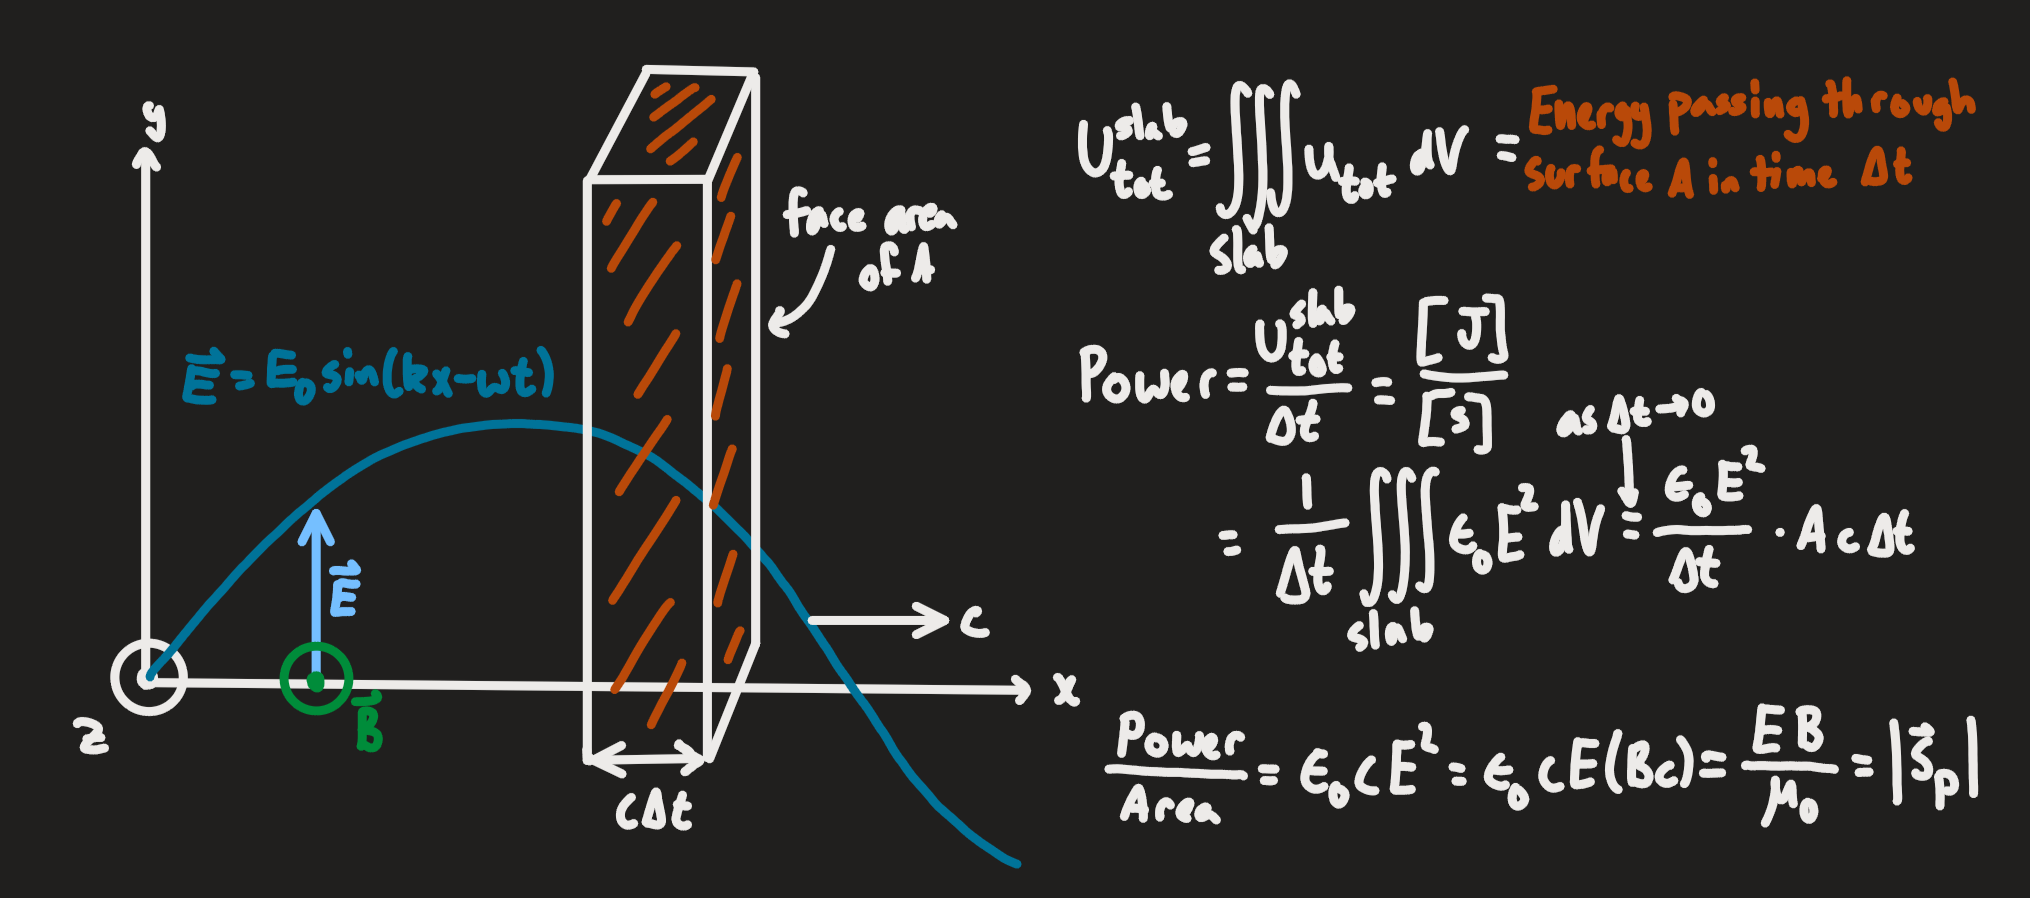 y
face area
of A
E⃗ = E₀ sin(kx-ωt)
E⃗
c
x
z
B⃗
cΔt
U_tot^slab = ∭_slab u_tot dV = Energy passing through
surface A in time Δt
Power = U_tot^slab / Δt = [J] / [s]
as Δt→0
= 1/Δt ∭_slab ϵ₀E² dV = ϵ₀E² / Δt · A c Δt
Power / Area = ϵ₀ c E² = ϵ₀ c E(Bc) = EB / μ₀ = |S⃗_p|